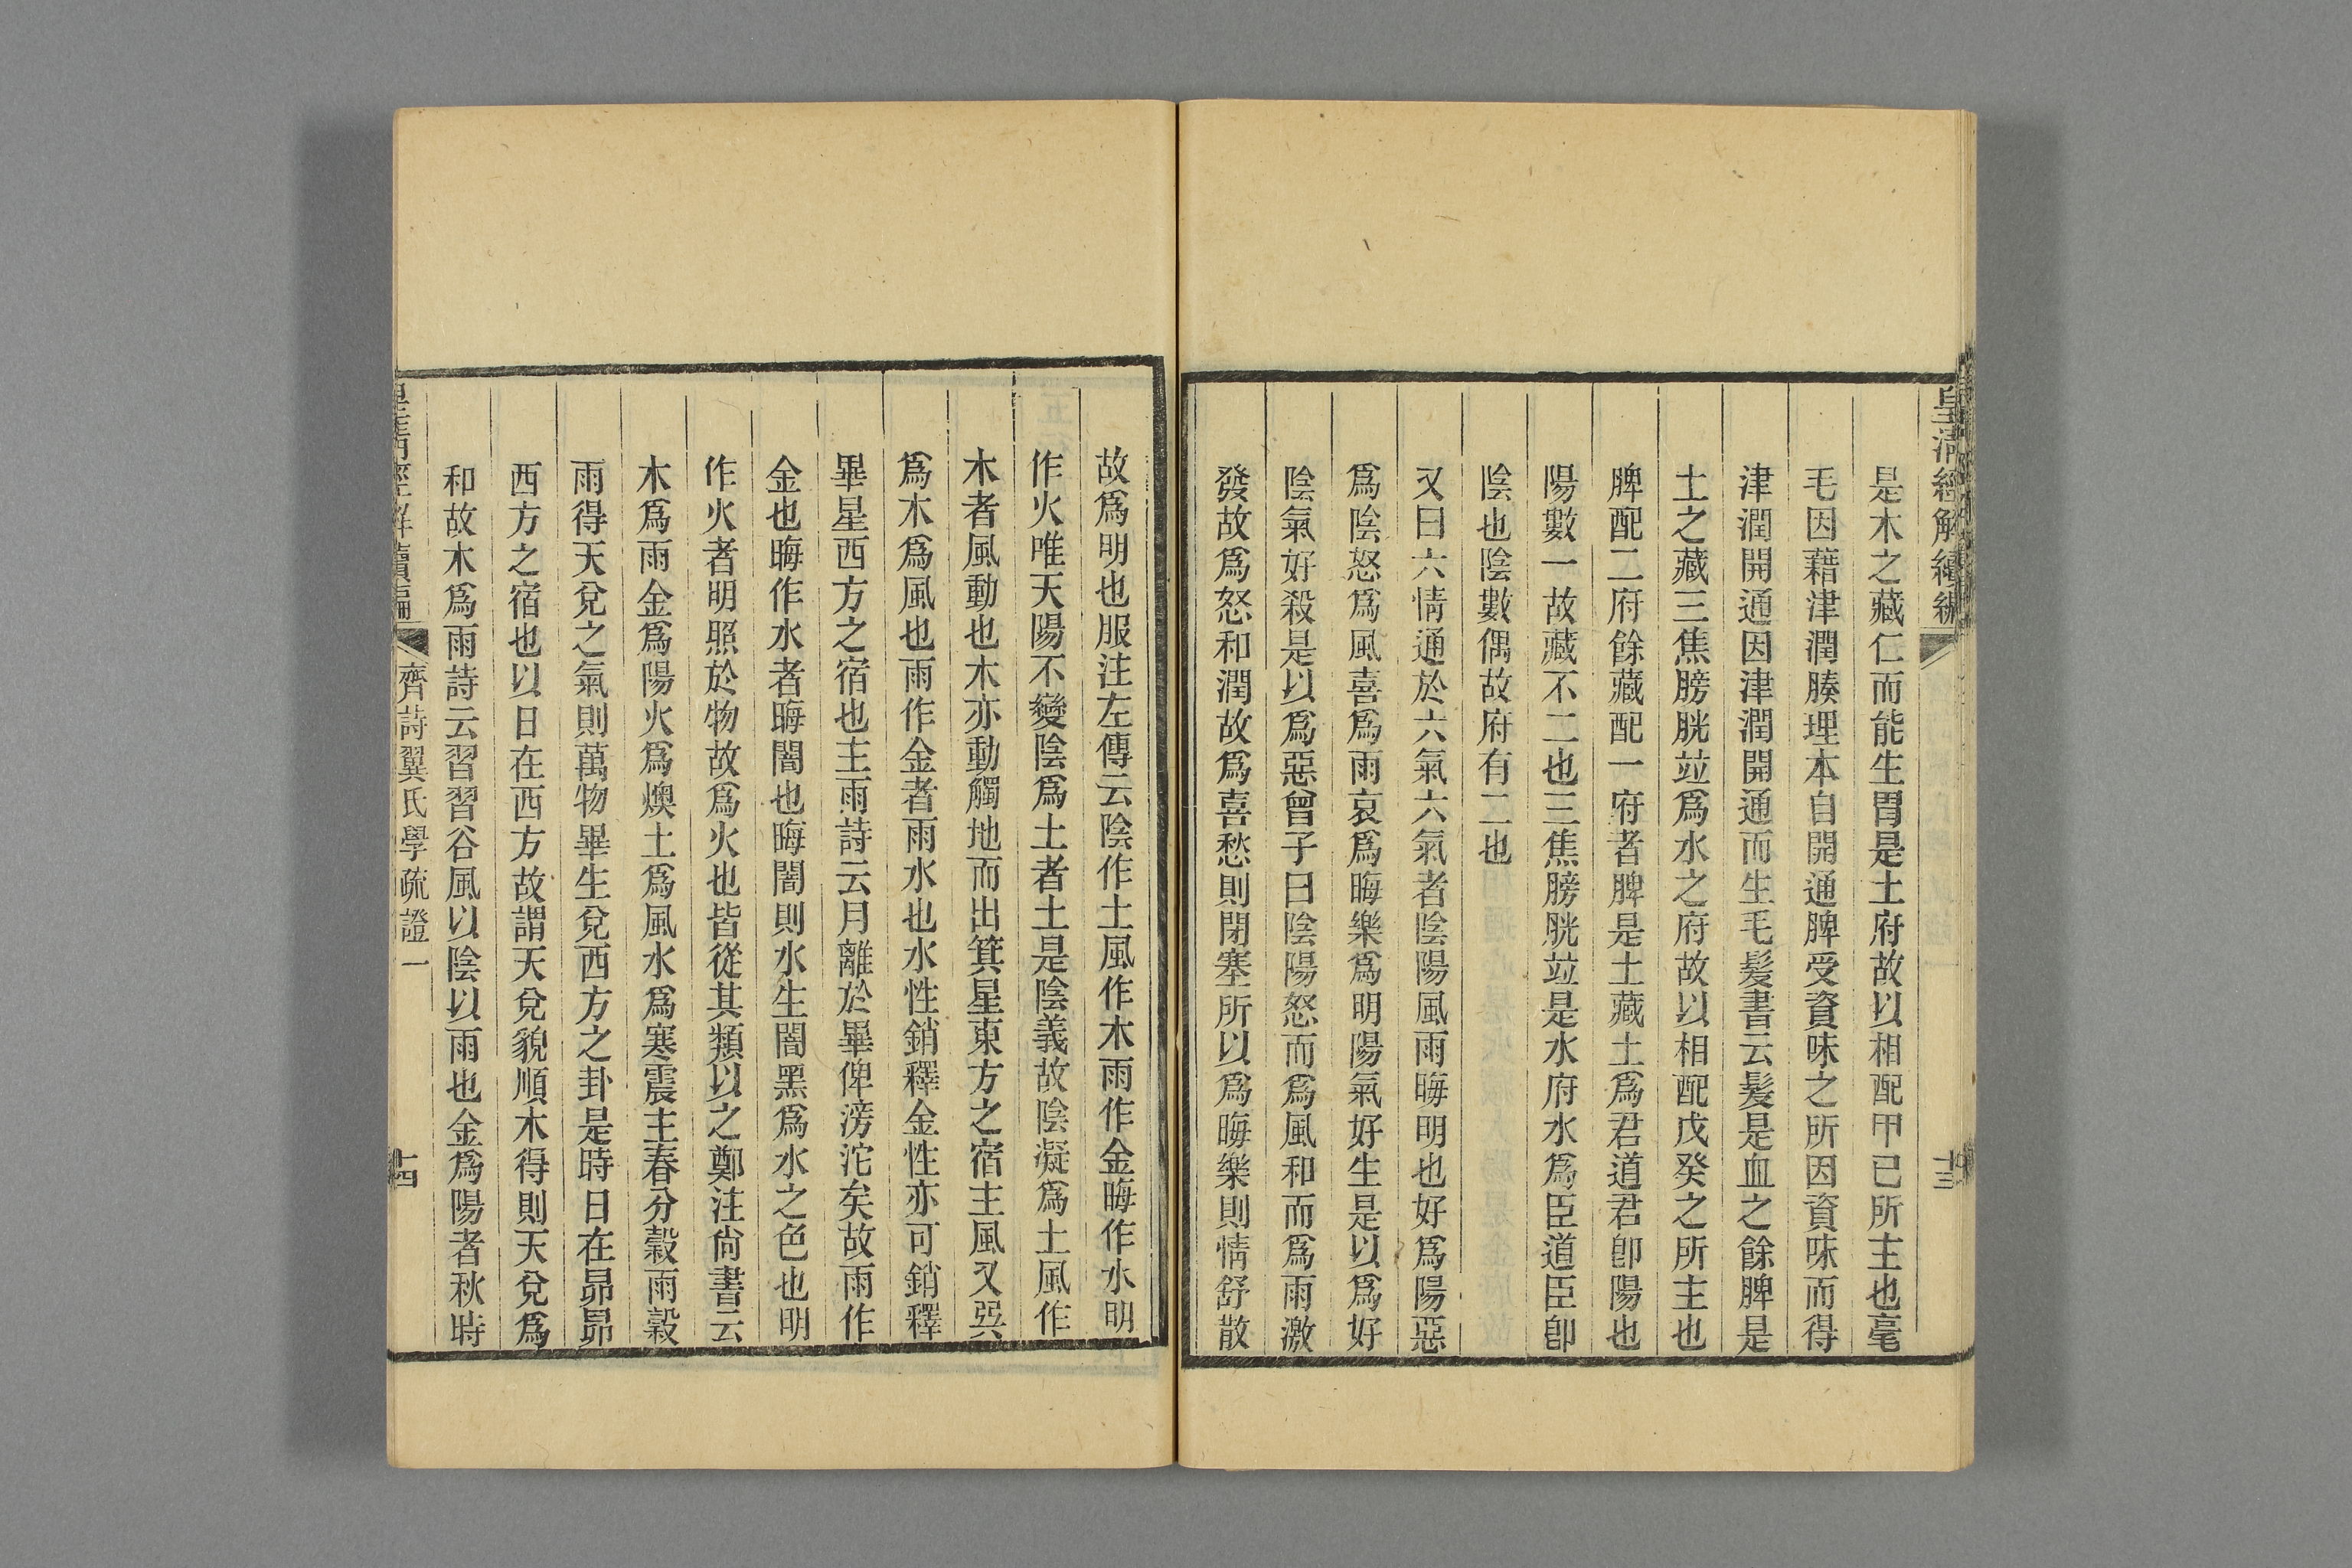 皇清經解續編
十三
是木之藏仁而能生胃是土府故以相配甲己所主也毫
毛因藉津潤腠理本自開通脾受資味之所因資味而得
津潤開通因津潤開通而生毛髮書云髮是血之餘脾是
土之藏三焦膀胱竝爲水之府故以相配戊癸之所主也
脾配二府餘藏配一府者脾是土藏土爲君道君卽陽也
陽數一故藏不二也三焦膀胱竝是水府水爲臣道臣卽
陰也陰數偶故府有二也
又曰六情通於六氣六氣者陰陽風雨晦明也好爲陽惡
爲陰怒爲風喜爲雨哀爲晦樂爲明陽氣好生是以爲好
陰氣好殺是以爲惡曾子曰陰陽怒而爲風和而爲雨激
發故爲怒和潤故爲喜愁則閉塞所以爲晦樂則情舒散
故爲明也服注左傳云陰作土風作木雨作金晦作水明
作火唯天陽不變陰爲土者土是陰義故陰凝爲土風作
木者風動也木亦動觸地而出箕星東方之宿主風又巽
爲木爲風也雨作金者雨水也水性銷釋金性亦可銷釋
畢星西方之宿也主雨詩云月離於畢俾滂沱矣故雨作
金也晦作水者晦闇也晦闇則水生闇黑爲水之色也明
作火者明照於物故爲火也皆從其類以之鄭注尙書云
木爲雨金爲陽火爲燠土爲風水爲寒震主春分穀雨穀
雨得天兌之氣則萬物畢生兌西方之卦是時日在昴昴
西方之宿也以日在西方故謂天兌貌順木得則天兌爲
和故木爲雨詩云習習谷風以陰以雨也金爲陽者秋時
皇清經解續編
齊詩翼氏學疏證一
十四